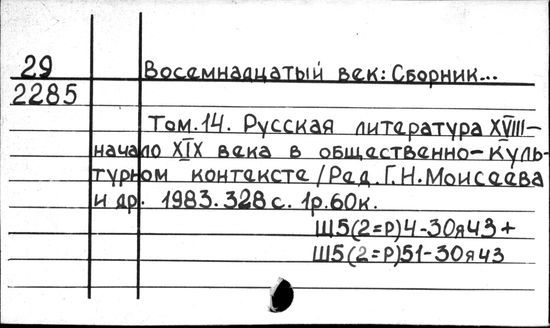 29 Восемнадцатый век: Сборник...
2285
Том.14. Русская литература XVIII-
начало XIX века в общественно-куль-
турном контексте/Ред. Г.Н.Моисеева
и др. 1983. 328 с. 1р.60к.
Ш5(2=Р)4-30я43+
Ш5(2=Р)51-30я43